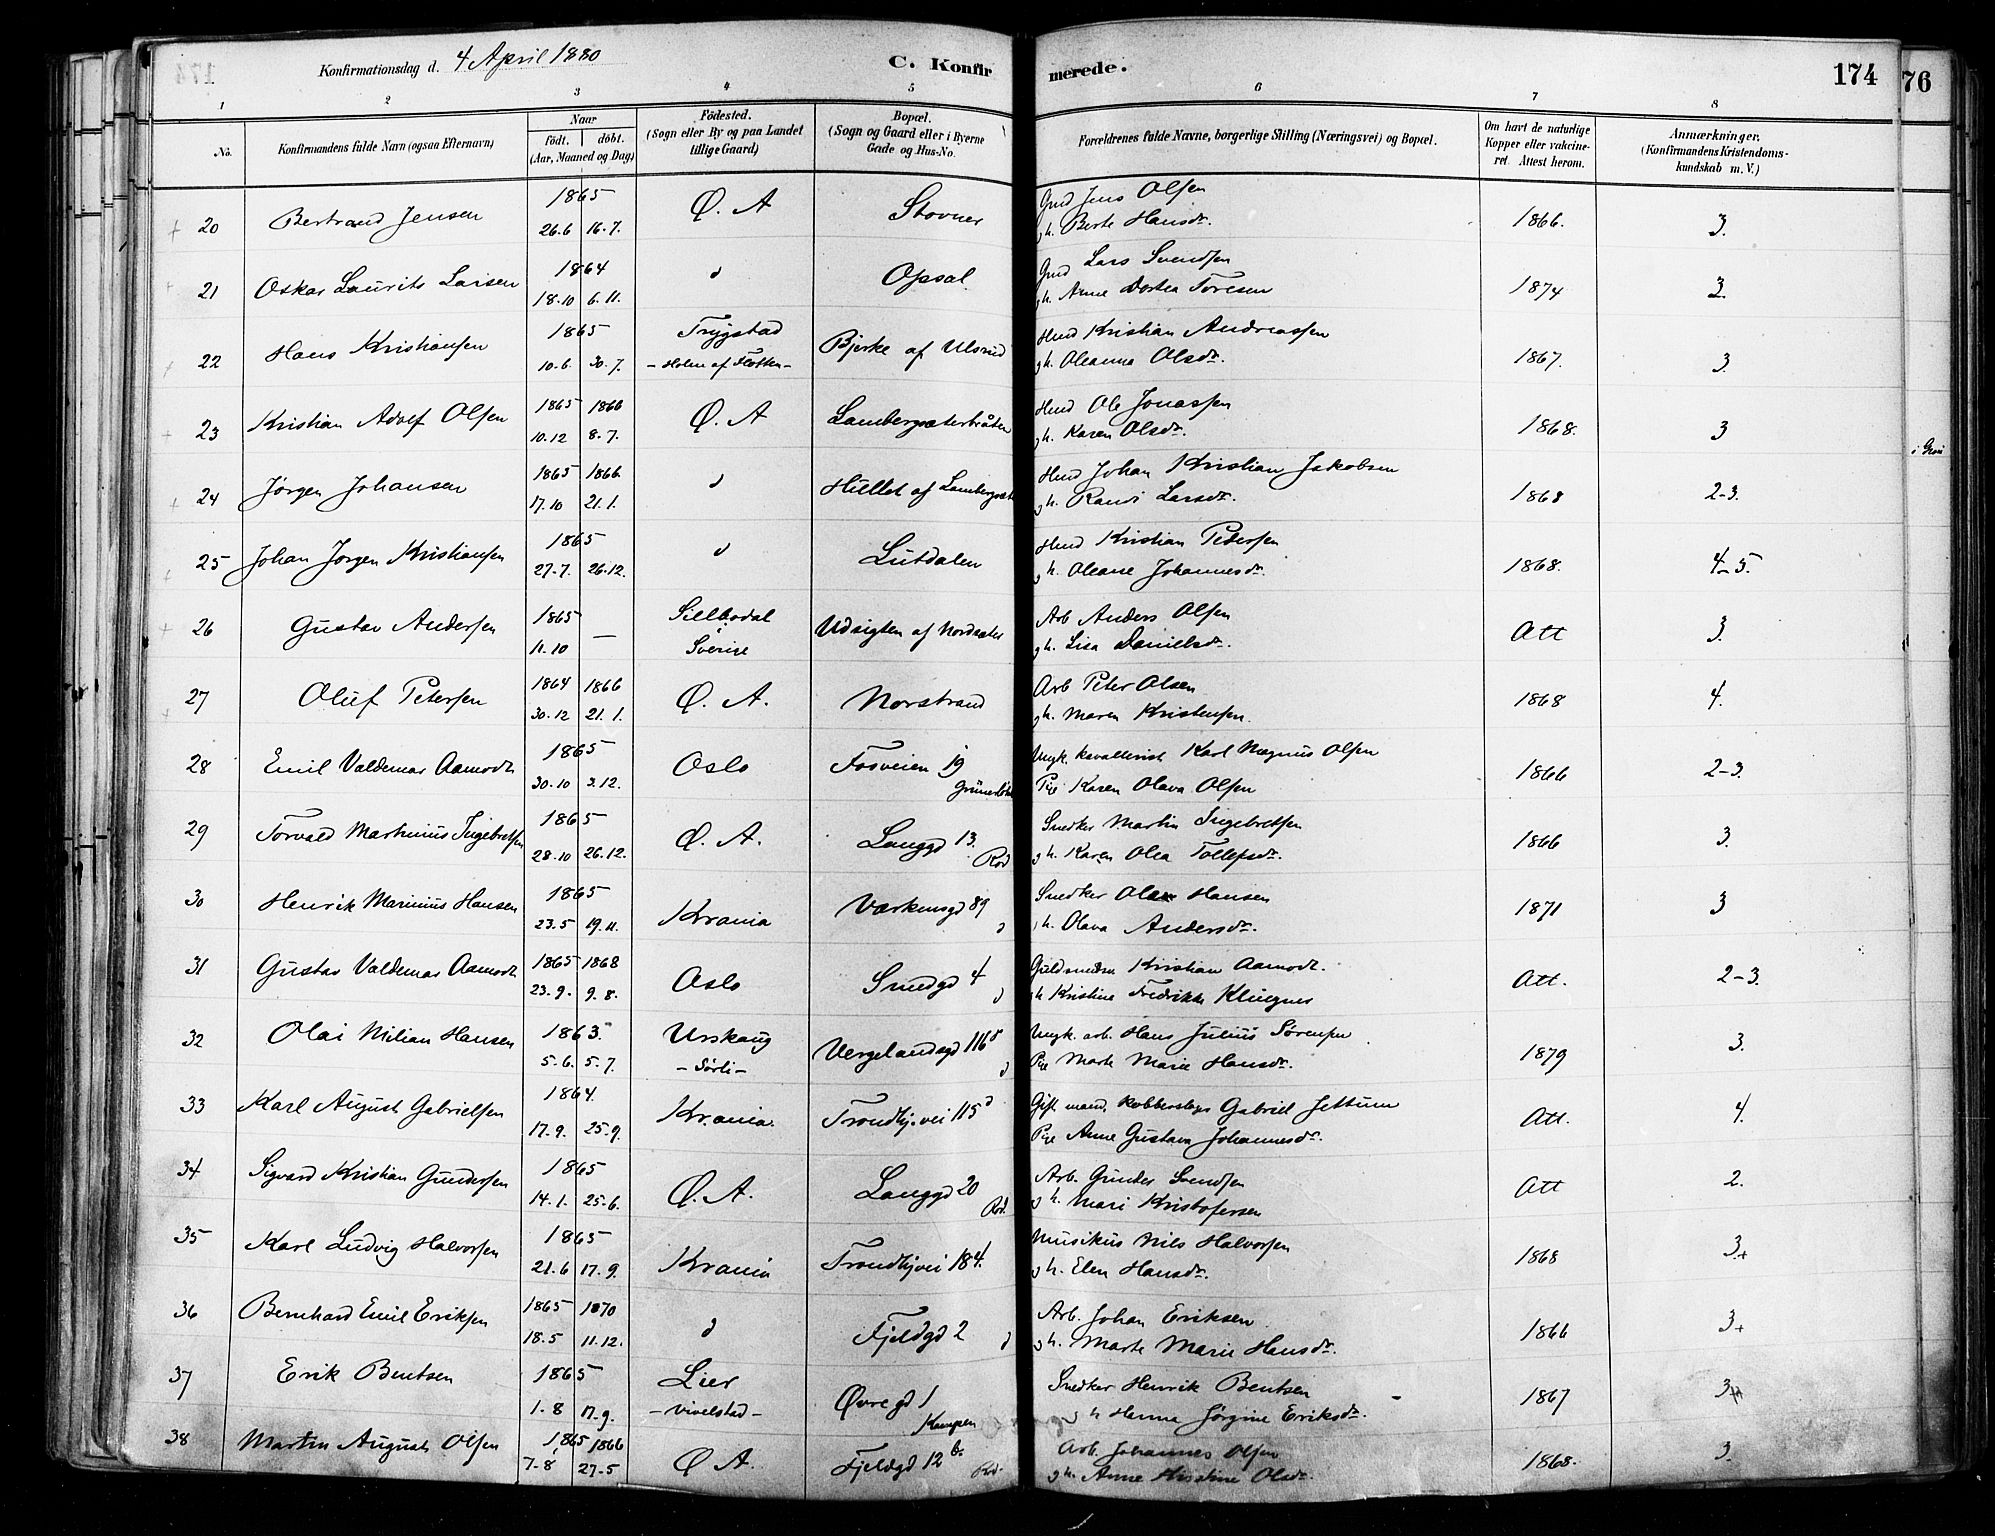 Konfirmationsdag d. 4 April 1880 C. Konfirmerede. 174 76
1 2 3 4 5 6 7 8
No. Konfirmandens fulde Navn (ogsaa Efternavn)
Naar født. døbt. (Aar, Maaned og Dag)
Fødested. (Sogn eller By og paa Landet tillige Gaard)
Bopæl. (Sogn og Gaard eller i Byerne Gade og Hus-No.
Forældrenes fulde Navne, borgerlige Stilling (Næringsvei) og Bopæl.
Om havt de naturlige Kopper eller vakcineret. Attest herom.
Anmærkninger. (Konfirmandens Kristendomskundskab m. V.)
20 Bertrand Jensen 1865 26.6 16.7. Ø. A Stovner Gmd Jens Olsen gh. Berte Hansdr. 1866. 3.
21 Oskar Laurits Larsen 1864 18.10 6.11. d Opsal Gmd Lars Svendsen gh. Anne Dortea Toresen 1874 3.
22 Hans Kristiansen 1865 10.6. 30.7. Trygstad - Holm af Fløtten - Bjerke af Ulsrud Hmd Kristian Andreassen gh. Oleanna Olsdr. 1867. 3.
23 Kristian Adolf Olsen 1865 1866 10.12 8.7. Ø. A Lambergsæterbråten Hmd Ole Jonassen gh. Karen Olsdr. 1868. 3
24 Jørgen Johansen 1865 1866. 17.10 21.1. d Hullet af Lambergsæt Hmd Johan Kristian Jakobsen gh. Randi Larsdr. 1868 2-3.
25 Johan Jørgen Kristiansen 1865 27.7. 26.12. d Lutdalen Hmd Kristian Petersen gh. Oleane Johannesdr. 1868. 4-5.
26 Gustav Andersen 1865 11.10 — Sillbodal i Sverige Udsigten af Nordsæter Arb Anders Olsen gh. Lisa Danielsdr. Att 3.
27 Oluf Petersen 1864 1866 30.12 21.1. Ø. A. Norstrand Arb Peter Olsen gh. Maren Kristensen. 1868 4.
28 Emil Valdemar Aamodt 1865 30.10 3.12. Oslo Fosveien 19 Grünerløk Ungk. kavallerist Karl Magnus Olsen Pige Karen Olava Olsen 1866 2-3.
29 Torvald Martinius Ingebretsen 1865 28.10 26.12. Ø. A. Langgd 13. Rod Snedker Martin Ingebretsen gh. Karen Olea Tollefsdr. 1866 3.
30 Henrik Marinius Hansen 1865 23.5 19.11. Krania Værkensgd 89 d Snedker Ole Hansen gh. Olava Andersdr. 1871 3
31 Gustav Valdemar Aamodt 1865 1868 23.9. 9.8. Oslo Smedgd 4 d Guldsmedsv Kristian Aamodt. gh Kristine Fredrikke Klingnes Att. 2-3.
32 Olai Milian Hansen 1863. 5.6. 5.7. Urskoug - Sørli - Vergelandsgd 116 d Ungk. arb. Hans Julius Sørensen Pige Marte Marie Hansdr. 1879 3.
33 Karl August Gabrielsen 1864. 17.9. 25.9. Krania. Trondhj.vei 115 d Gift mand. Kobberslager Gabriel Jettum Pige Anne Gustava Johannesdr. Att. 4.
34 Sigvard Kristian Gundersen 1865 14.1. 25.6. Ø. A. Langgd 20 Rod. Arb. Gunder Svendsen gh. Mari Kristofersen Att 2.
35 Karl Ludvig Halvorsen 1865 21.6 17.9. Krania Trondhjvei 184. Musikus Nils Halvorsen gh. Elen Hansdr. 1868 3+
36 Bernhard Emil Eriksen 1865 1870 18.5 11.12. d Fjeldgd 2 d Arb. Johan Eriksen gh. Marte Marie Hansdr. 1866 3+
37 Erik Bentsen 1865 1.8 17.9. Lier - Vivelstad - Øvregd 1 Kampen Snedker Henrik Bentsen gh Hanna Jørgine Eriksdr. 1867 3+
38 Martin August Olsen 1865 1866 7.8 27.5 Ø A. Fjeldgd 12 b. Rd. Arb. Johannes Olsen gh. Anne Kristine Olsdr 1868. 3.